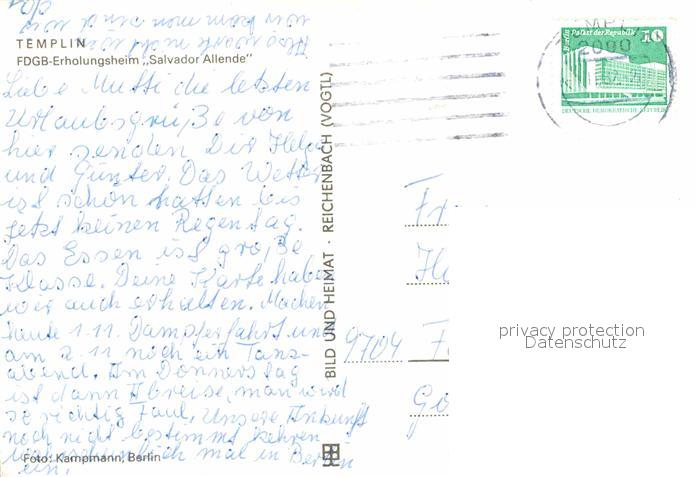 TEMPLIN
FDGB-Erholungsheim „Salvador Allende"
Liebe Mutti die letzten
Urlaubsgrüße von
hier senden Dir Helga
und Günter. Das Wetter
ist schön hatten bis
jetzt keinen Regentag.
Das Essen ist große
Klasse. Deine Karte haben
wir auch erhalten. Machen
heute 1.11. Dampferfahrt und
am 2.11 noch ein Tanz-
abend. Am Donnerstag
ist dann Abreise, man wird
so richtig faul. Unsere Ankunft
noch nicht bestimmt kehren
mal in Berlin
ein.
Foto: Kampmann, Berlin
BILD UND HEIMAT · REICHENBACH (VOGTL)
Berlin Palast der Republik 10
DEUTSCHE DEMOKRATISCHE REPUBLIK
2090
Fr
9704
Go
privacy protection
Datenschutz